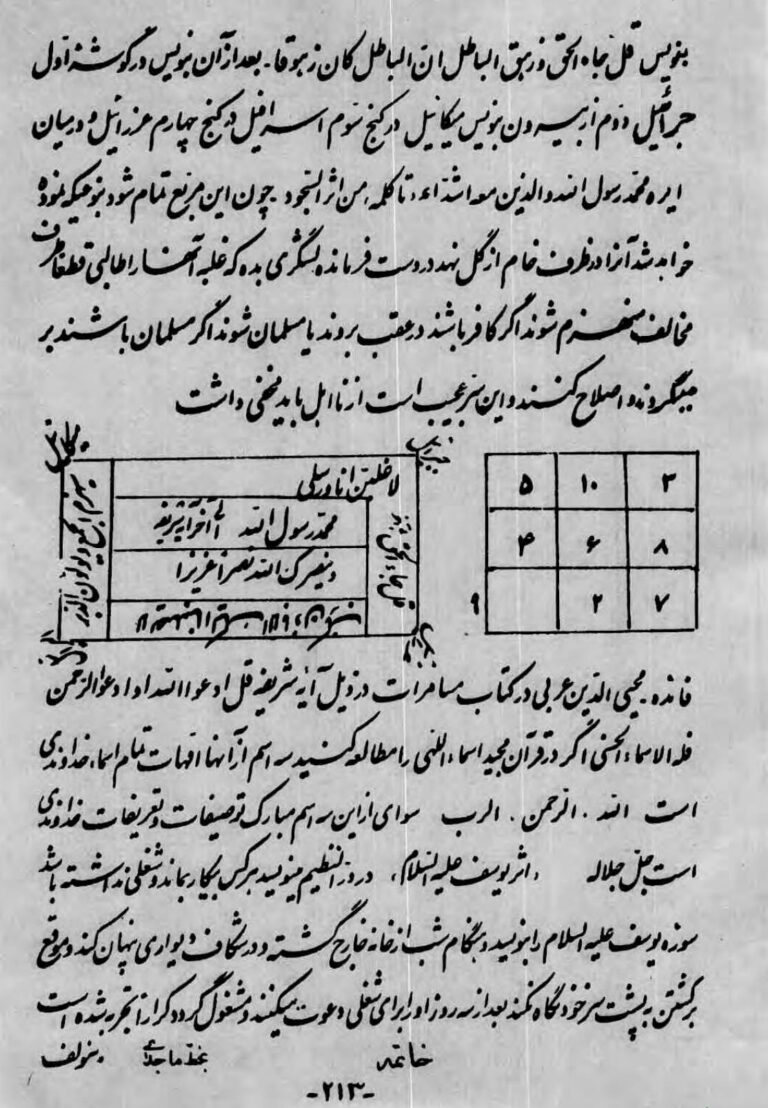 بنویس قل جاء الحق و زهق الباطل ان الباطل کان زهوقا. بعد از آن بنویس در گوشه اول
جبرائیل دوم از بیرون بنویس میکائیل در کنج سوم اسرافیل در کنج چهارم عزرائیل و در میان
دایره محمد رسول الله والذین معه اشداء، تا کلمه، من اثر السجود. چون این مربع تمام شود بنوعیکه نموده
خواهد شد آنرا در ظرف خام از گل نهد در دست فرمانده لشگری بده که غلبه آنها را طالبی قطعا طرف
مخالف منهزم شوند اگر کافر باشند در عقب بروند یا مسلمان شوند اگر مسلمان باشند بر
میگردند و اصلاح کنند و این سر عجیب است از نا اهل باید مخفی داشت
میکائیل
لاغلبن انا و رسلی
محمد رسول الله الی آخر آیه شریفه
و ینصرک الله نصرا عزیزا
سیهزم الجمع و یولون الدبر
۵ ۱۰ ۳
۴ ۶ ۸
۹ ۲ ۷
فائده محیی الدین عربی در کتاب مسامرات در ذیل آیه شریفه قل ادعوا الله او ادعوا الرحمن
فله الاسماء الحسنی اگر در قرآن مجید اسماء اللهی را مطالعه کنید سه اسم از آنها امهات تمام اسماء خداوندی
است الله . الرحمن . الرب سوای از این سه اسم مبارک توصیفات و تعریفات خداوندی
است جل جلاله ، اثر یوسف علیه السلام، در در النظیم مینویسد هر کس بیکار بماند و شغلی نداشته باشد
سوره یوسف علیه السلام را بنویسد و بهنگام شب از خانه خارج گشته و در شکاف دیواری پنهان کند و موقع
برگشتن به پشت سر خود نگاه نکند بعد از سه روز او را برای شغلی دعوت میکنند و مشغول گردد کرارا تجربه شده است
خاتمه بخط ماجدی مؤلف
-۲۱۳-